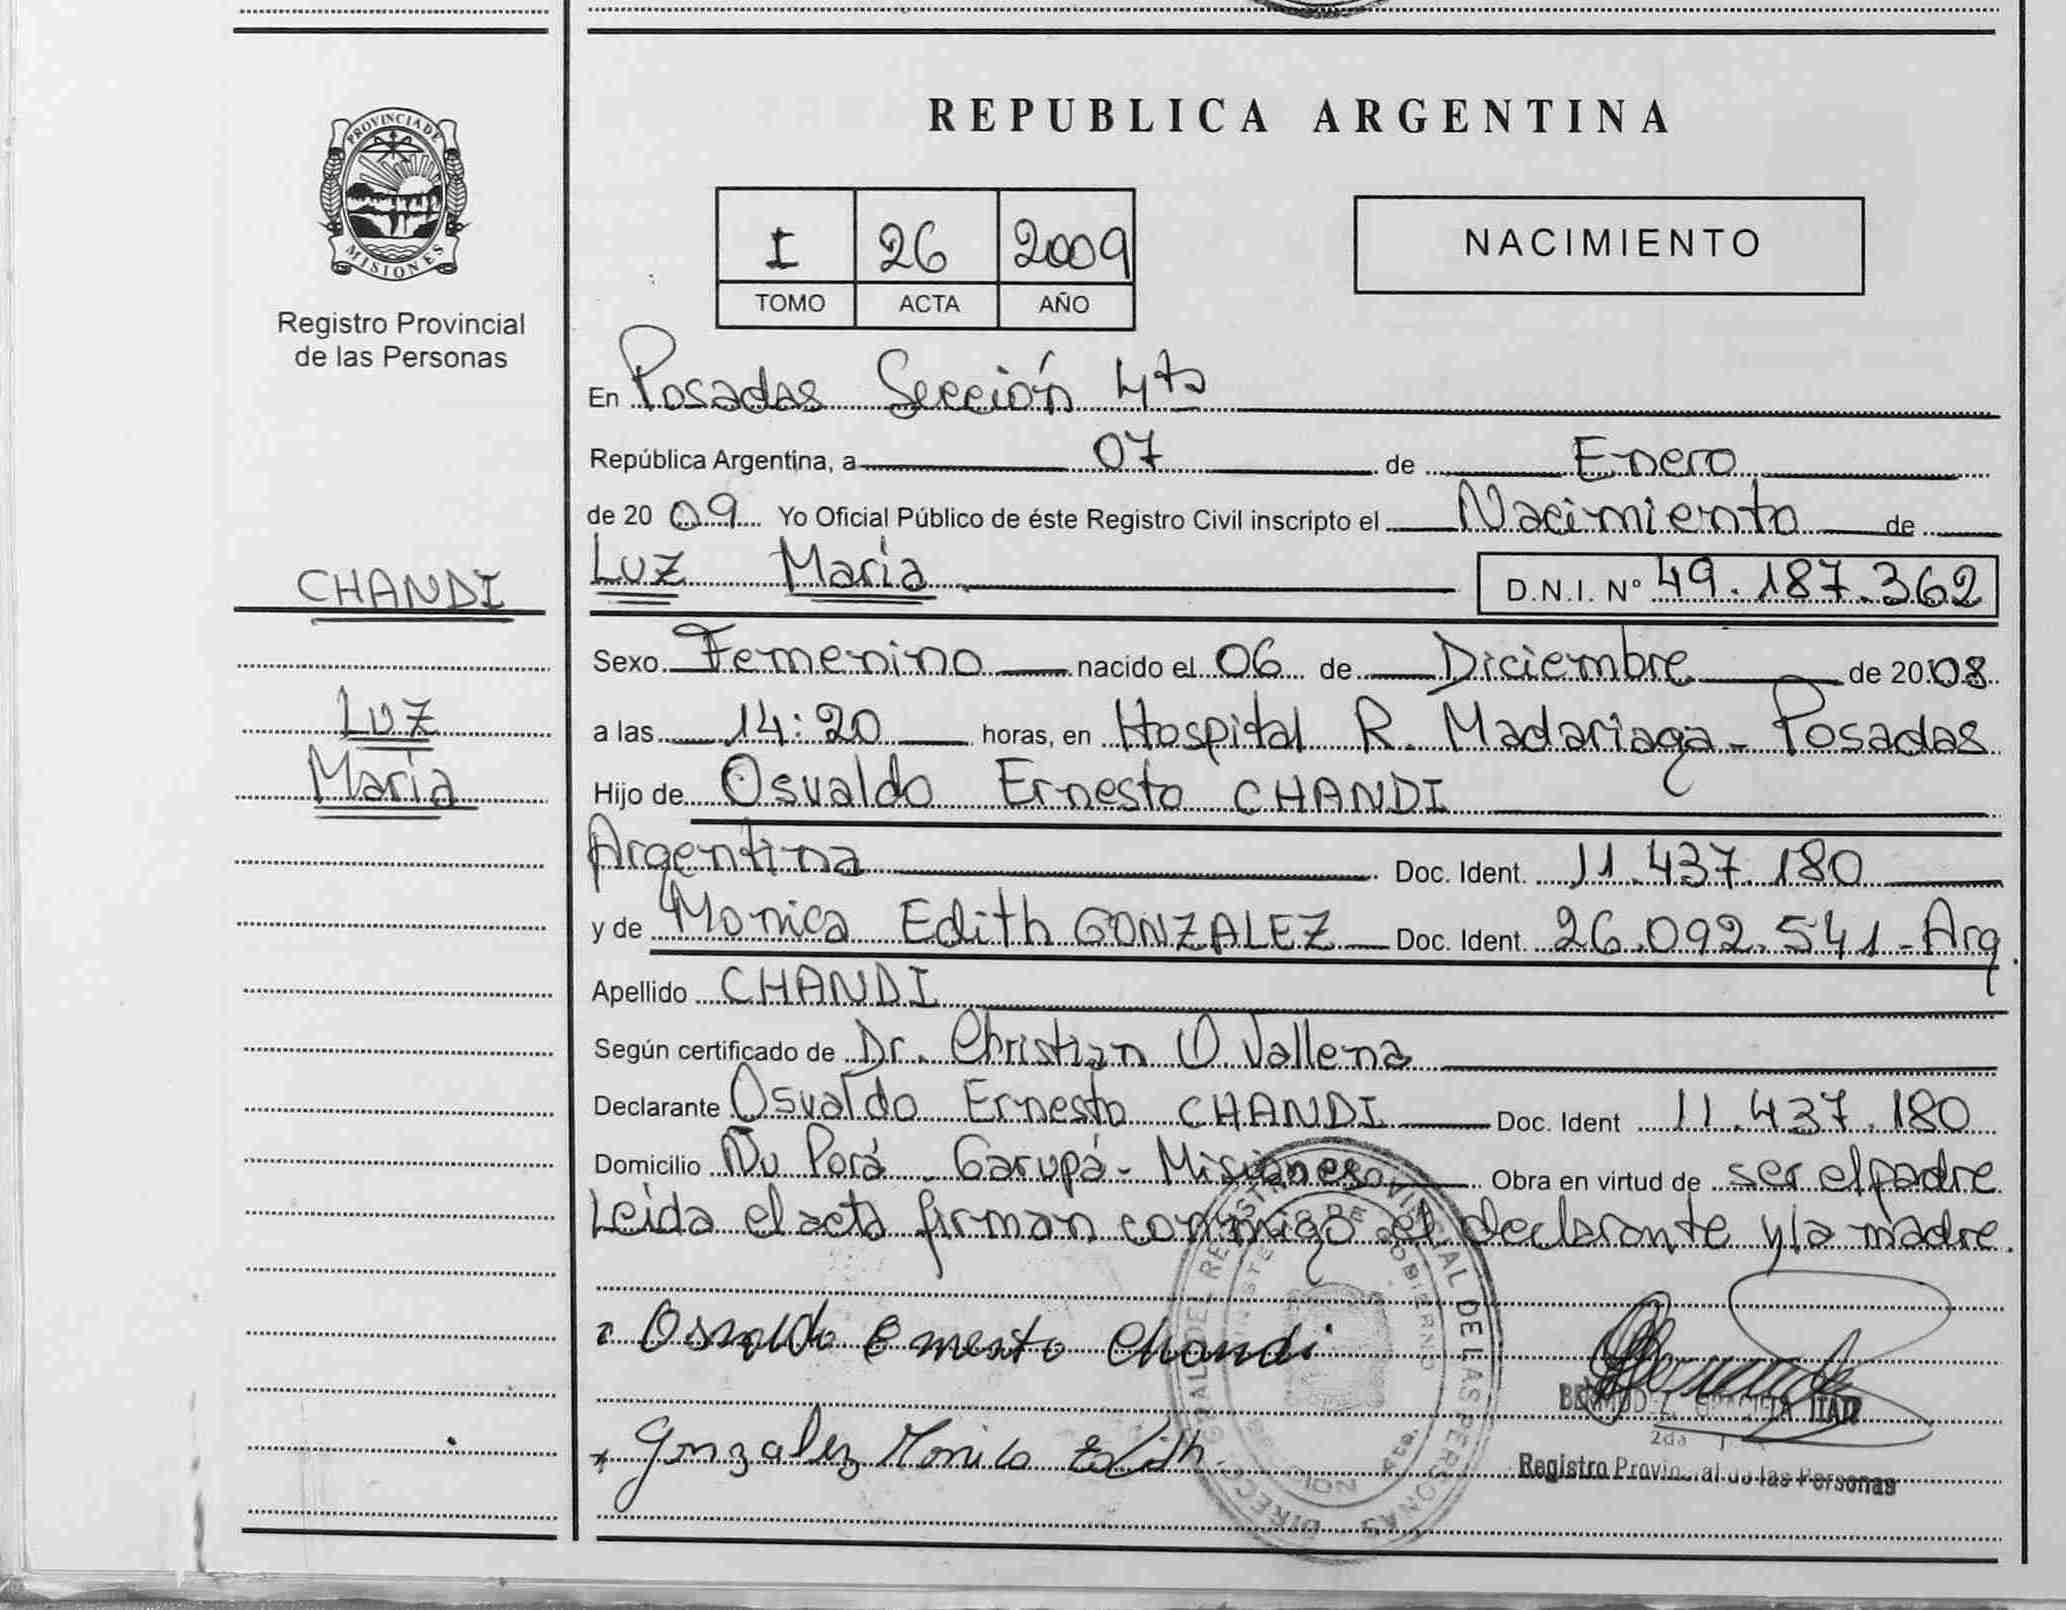 REPUBLICA ARGENTINA
PROVINCIA DE
MISIONES
Registro Provincial
de las Personas
I 26 2009
TOMO ACTA AÑO
NACIMIENTO
En Posadas Sección 4ta
República Argentina, a 07 de Enero
de 2009 Yo Oficial Público de éste Registro Civil inscripto el Nacimiento de
CHANDI
Luz María D.N.I. N° 49.187.362
Sexo Femenino nacido el 06 de Diciembre de 2008
Luz
a las 14:20 horas, en Hospital R. Madariaga - Posadas
María
Hijo de Osvaldo Ernesto CHANDI
Argentina Doc. Ident. 11.437.180
y de Monica Edith GONZALEZ Doc. Ident. 26.092.541 - Arg.
Apellido CHANDI
Según certificado de Dr. Christian O. Vallena
Declarante Osvaldo Ernesto CHANDI Doc. Ident 11.437.180
Domicilio Ñu Porá - Garupá - Misiones Obra en virtud de ser el padre
Leída el acta firman conmigo el declarante y la madre.
Osvaldo Ernesto Chandi
Gonzalez Monica Edith
ITATI
2da
Registro Provincial de las Personas
DIRECC GRAL DEL REGISTRO PROVINCIAL DE LAS PERSONAS
MINISTERIO DE GOBIERNO